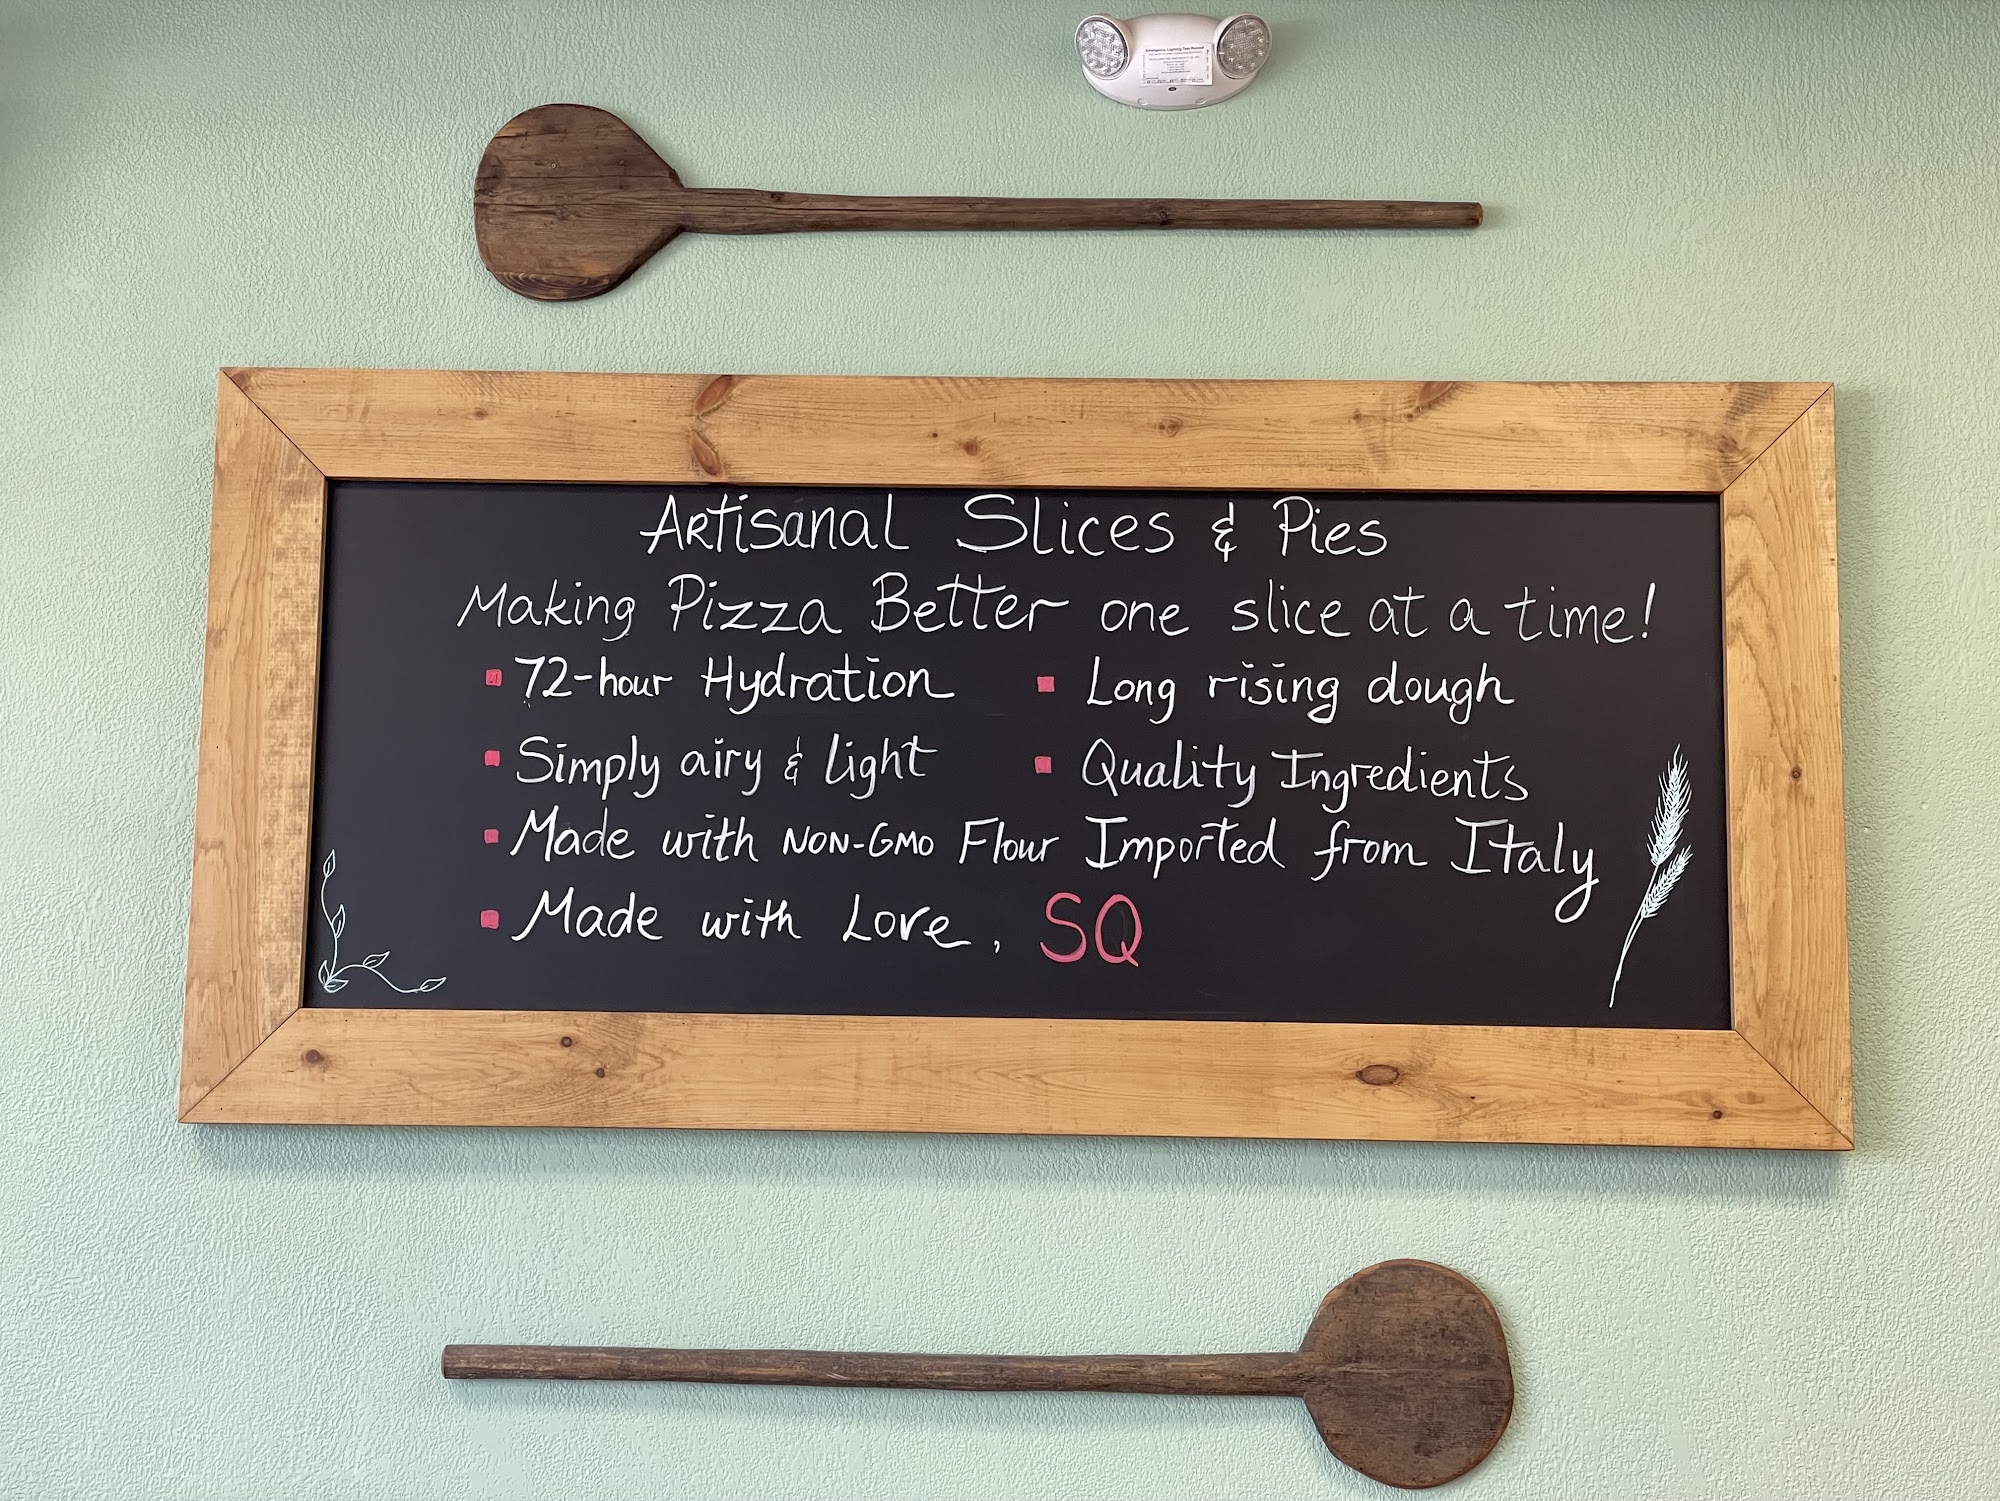 Emergency Lighting Test Record
Artisanal Slices & Pies
Making Pizza Better one slice at a time!
72-hour Hydration
Long rising dough
Simply airy & light
Quality Ingredients
Made with NON-GMO Flour Imported from Italy
Made with Love, SQ